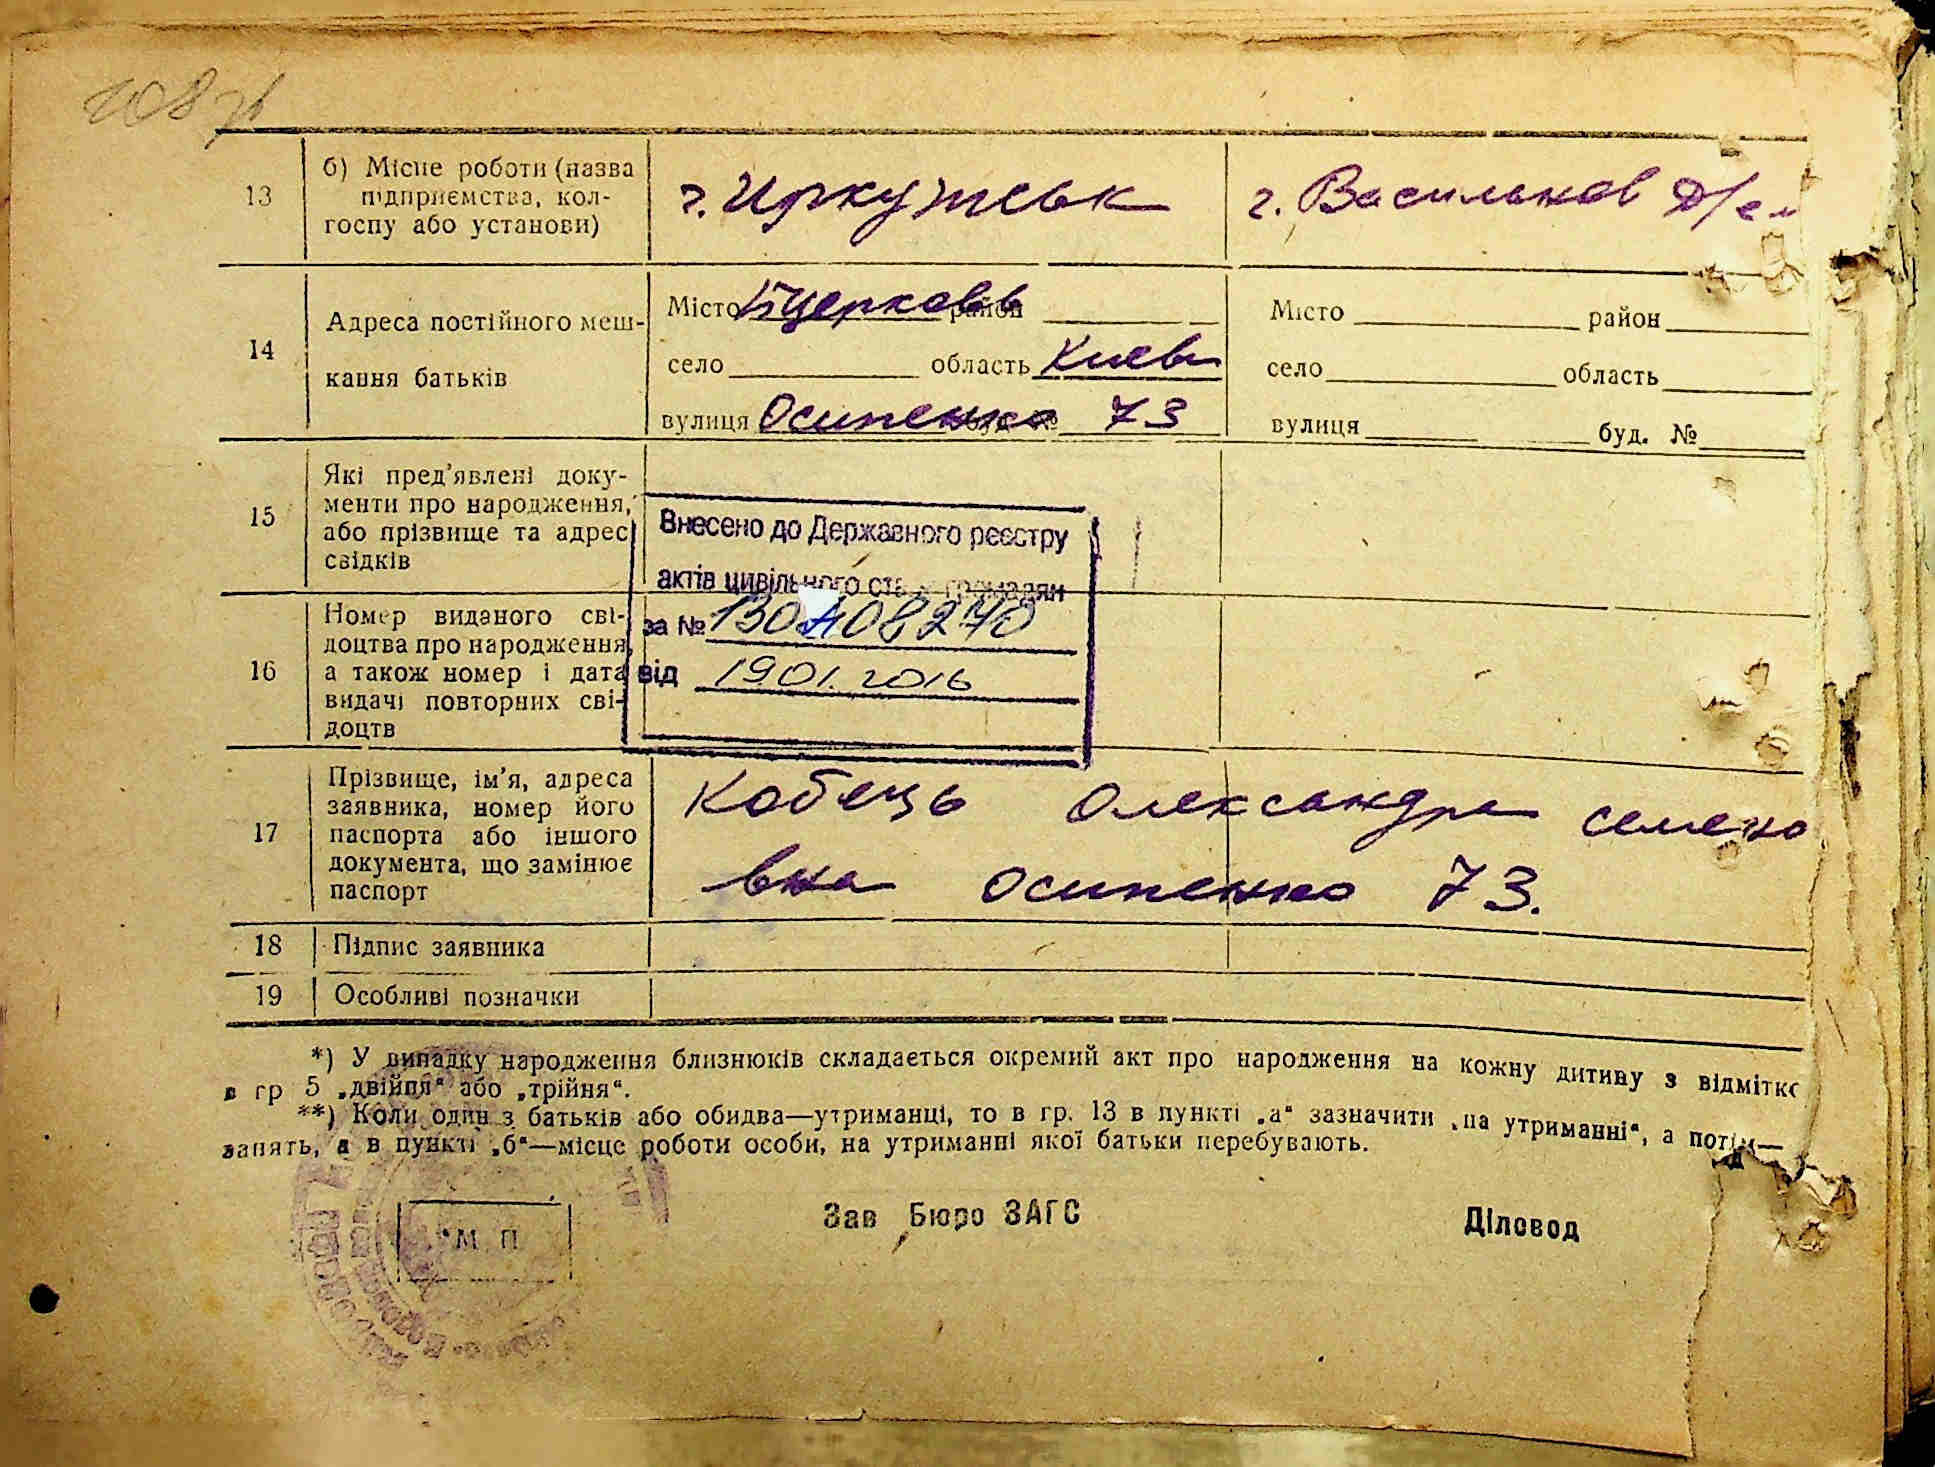 108
13
б) Місце роботи (назва
підприємства, кол-
госпу або установи)
г. Иркутськ
г. Васильков
14
Адреса постійного меш-
кання батьків
Місто Бцерковь район
село область Киев
вулиця Осипенко буд. № 73
Місто район
село область
вулиця буд. №
15
Які пред'явлені доку-
менти про народження,
або прізвище та адрес
свідків
Внесено до Державного реєстру
актів цивільного громадян
за №
від 19.01.2016
16
Номер виданого сві-
доцтва про народження,
а також номер і дата
видачі повторних сві-
доцтв
17
Прізвище, ім'я, адреса
заявника, номер його
паспорта або іншого
документа, що замінює
паспорт
Кобець Олександра семено
вна осипенко 73.
18 Підпис заявника
19 Особливі позначки
*) У випадку народження близнюків складається окремий акт про народження на кожну дитину з відмітко
в гр 5 „двійня“ або „трійня“.
**) Коли один з батьків або обидва—утриманці, то в гр. 13 в пункті „а“ зазначити „на утриманні“, а потім—
занять, а в пункті „б“—місце роботи особи, на утриманні якої батьки перебувають.
М П
Зав Бюро ЗАГС
Діловод